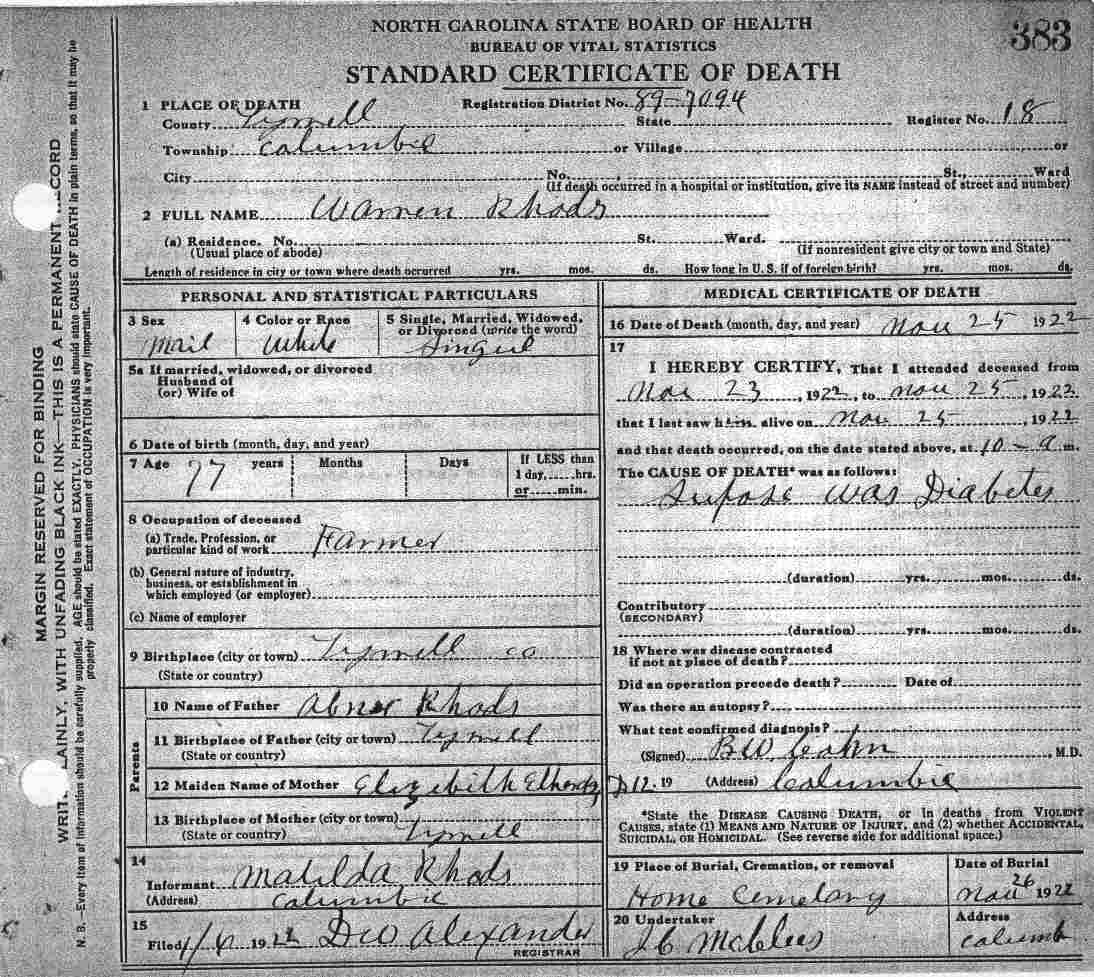 383
NORTH CAROLINA STATE BOARD OF HEALTH
BUREAU OF VITAL STATISTICS
STANDARD CERTIFICATE OF DEATH
1 PLACE OF DEATH Registration District No. 89-7094
County Tyrrell State Register No. 18
Township Columbia or Village or
City No. St., Ward
(If death occurred in a hospital or institution, give its NAME instead of street and number)
2 FULL NAME Warren Rhods
(a) Residence. No. St. Ward.
(Usual place of abode) (If nonresident give city or town and State)
Length of residence in city or town where death occurred yrs. mos. ds. How long in U.S. if of foreign birth? yrs. mos. ds.
PERSONAL AND STATISTICAL PARTICULARS
3 Sex 4 Color or Race 5 Single, Married, Widowed,
or Divorced (write the word)
Mail White Singul
5a If married, widowed, or divorced
Husband of
(or) Wife of
6 Date of birth (month, day, and year)
7 Age 77 years Months Days If LESS than
1 day, hrs.
or min.
8 Occupation of deceased
(a) Trade, Profession, or
particular kind of work Farmer
(b) General nature of industry,
business, or establishment in
which employed (or employer)
(c) Name of employer
9 Birthplace (city or town) Tyrrell co
(State or country)
Parents
10 Name of Father Abner Rhods
11 Birthplace of Father (city or town) Tyrrell
(State or country)
12 Maiden Name of Mother Elizabith
13 Birthplace of Mother (city or town)
(State or country) Tyrrell
14
Informant Matilda Rhods
(Address) Columbia
15
Filed 1922 DW Alexander
REGISTRAR
MEDICAL CERTIFICATE OF DEATH
16 Date of Death (month, day, and year) Nov 25 1922
17
I HEREBY CERTIFY, That I attended deceased from
Nov 23, 1922, to Nov 25, 1922
that I last saw him alive on Nov 25 1922
and that death occurred, on the date stated above, at 10-a m.
The CAUSE OF DEATH* was as follows:
Supose was Diabetes
(duration) yrs. mos. ds.
Contributory
(SECONDARY)
(duration) yrs. mos. ds.
18 Where was disease contracted
if not at place of death?
Did an operation precede death? Date of
Was there an autopsy?
What test confirmed diagnosis?
(Signed) BW Cohn, M.D.
D 12. 19 (Address) Columbia
*State the DISEASE CAUSING DEATH, or in deaths from VIOLENT
CAUSES, state (1) MEANS AND NATURE OF INJURY, and (2) whether ACCIDENTAL,
SUICIDAL, OR HOMICIDAL. (See reverse side for additional space.)
19 Place of Burial, Cremation, or removal Date of Burial
Home Cemetary Nov 26 1922
20 Undertaker Address
J C McClees Columb
MARGIN RESERVED FOR BINDING
LAINLY, WITH UNFADING BLACK INK—THIS IS A PERMANENT
N. B.—Every item of information should be carefully supplied. AGE should be stated EXACTLY. PHYSICIANS should state CAUSE OF DEATH in plain terms, so that it may be
properly classified. Exact statement of OCCUPATION is very important.